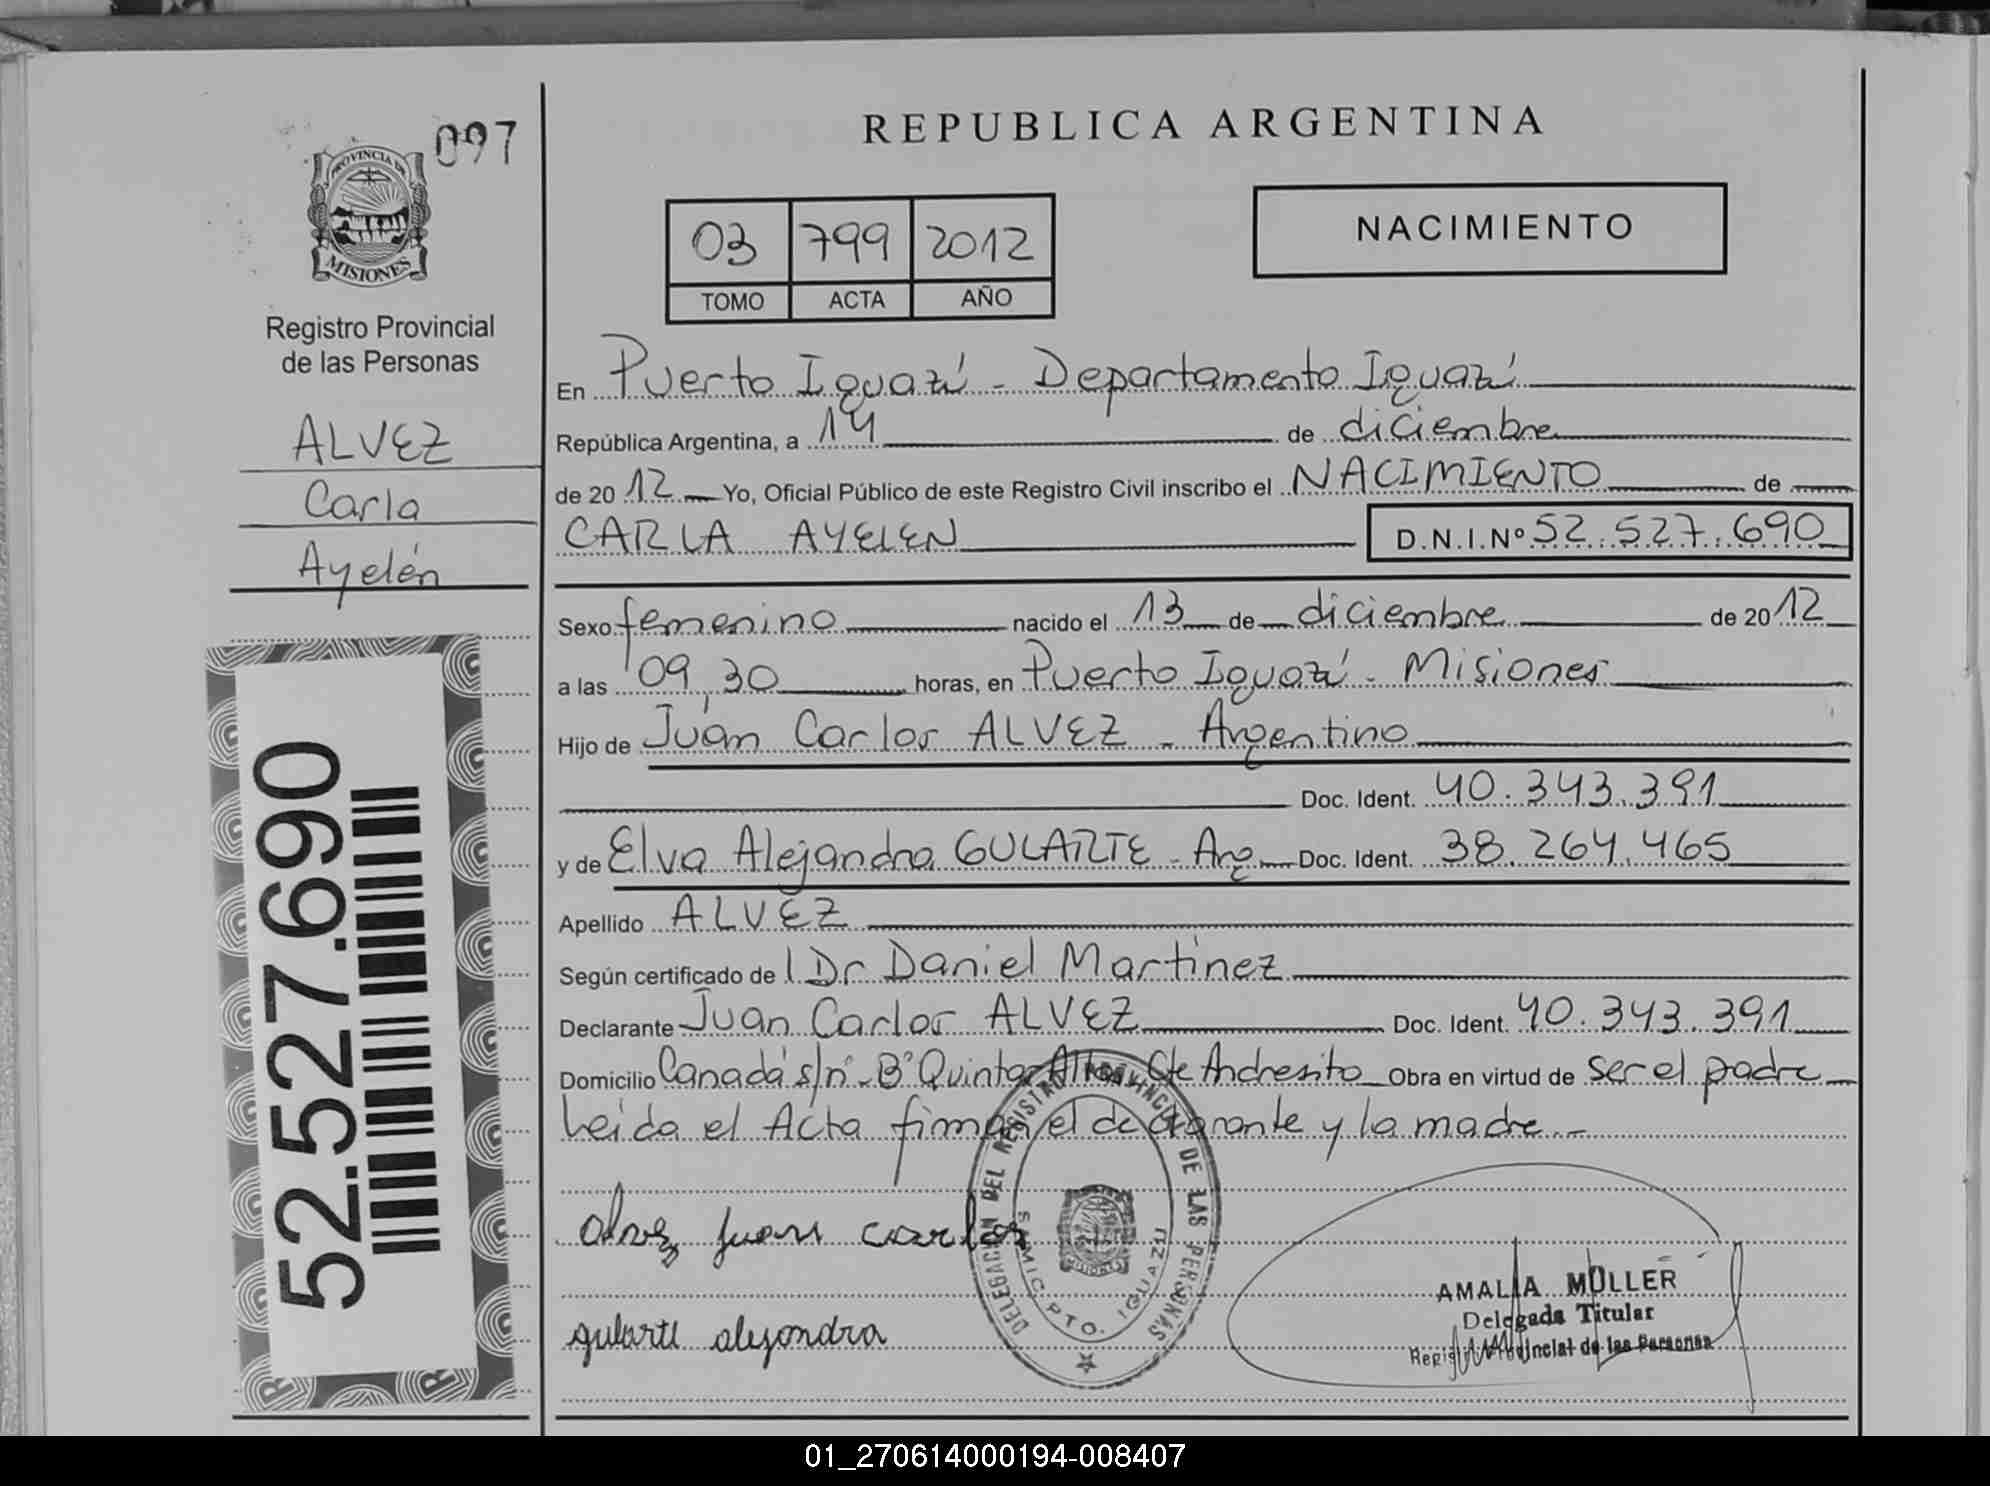 097
PROVINCIA DE
MISIONES
Registro Provincial
de las Personas
ALVEZ
Carla
Ayelén
52.527.690
REPUBLICA ARGENTINA
03 799 2012
TOMO ACTA AÑO
NACIMIENTO
En Puerto Iguazú - Departamento Iguazú
República Argentina, a 14 de diciembre
de 2012 Yo, Oficial Público de este Registro Civil inscribo el NACIMIENTO de
CARLA AYELEN D.N.I.Nº 52.527.690
Sexo femenino nacido el 13 de diciembre de 2012
a las 09,30 horas, en Puerto Iguazú - Misiones
Hijo de Juán Carlos ALVEZ - Argentino
Doc. Ident. 40.343.391
y de Elva Alejandra GULARTE - Arg Doc. Ident. 38.264.465
Apellido ALVEZ
Según certificado de Dr Daniel Martínez
Declarante Juan Carlos ALVEZ Doc. Ident. 40.343.391
Domicilio Canadá s/nº - Bº Quintas Altas Cte Andresito Obra en virtud de ser el padre
Leida el Acta firman el declarante y la madre -
alvez juan carlos
gularte alejandra
DELEGACION DEL REGISTRO PROVINCIAL DE LAS PERSONAS
SAMIC PTO. IGUAZU
MISIONES
AMALIA MÜLLER
Delegada Titular
Registro Provincial de las Personas
01_270614000194-008407